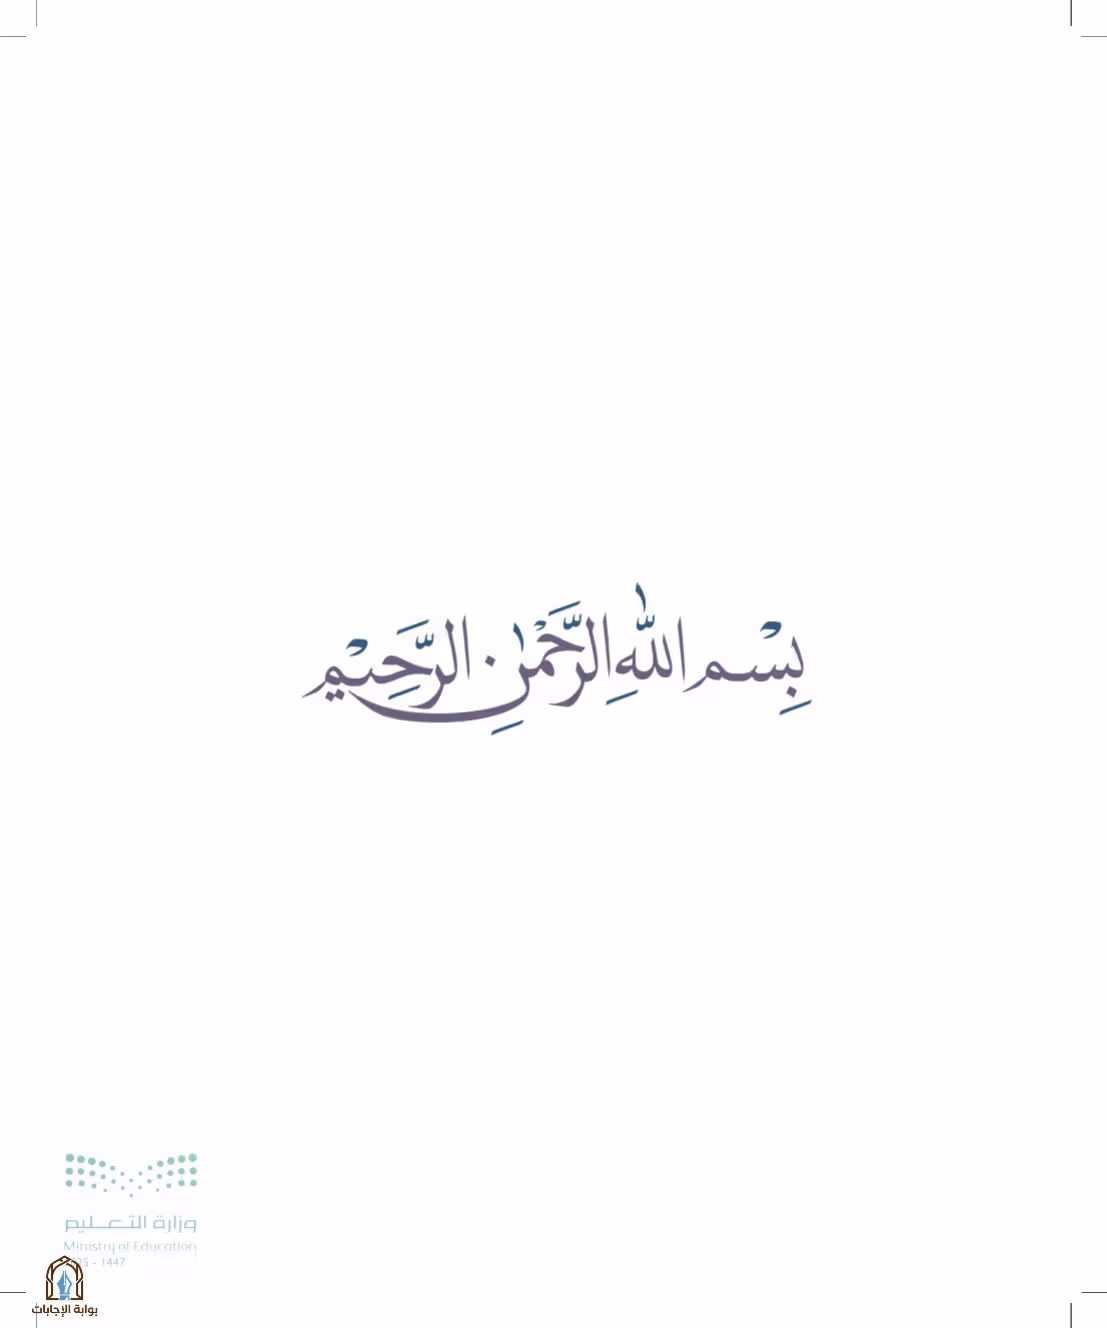 بِسْمِ اللَّهِ الرَّحْمَٰنِ الرَّحِيمِ
وزارة التعليم
Ministry of Education
25 - 1447
بوابة الإجابات